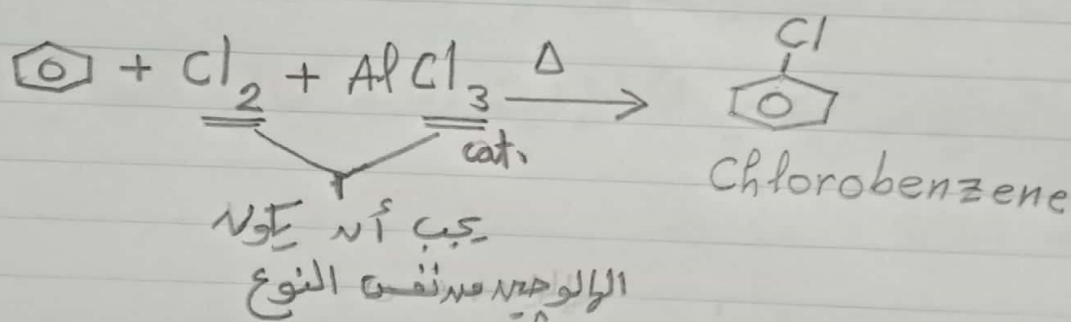 + Cl₂ + AlCl₃ Δ → Cl
cat.
Chlorobenzene
يجب أن يكون
الهالوجين من نفس النوع